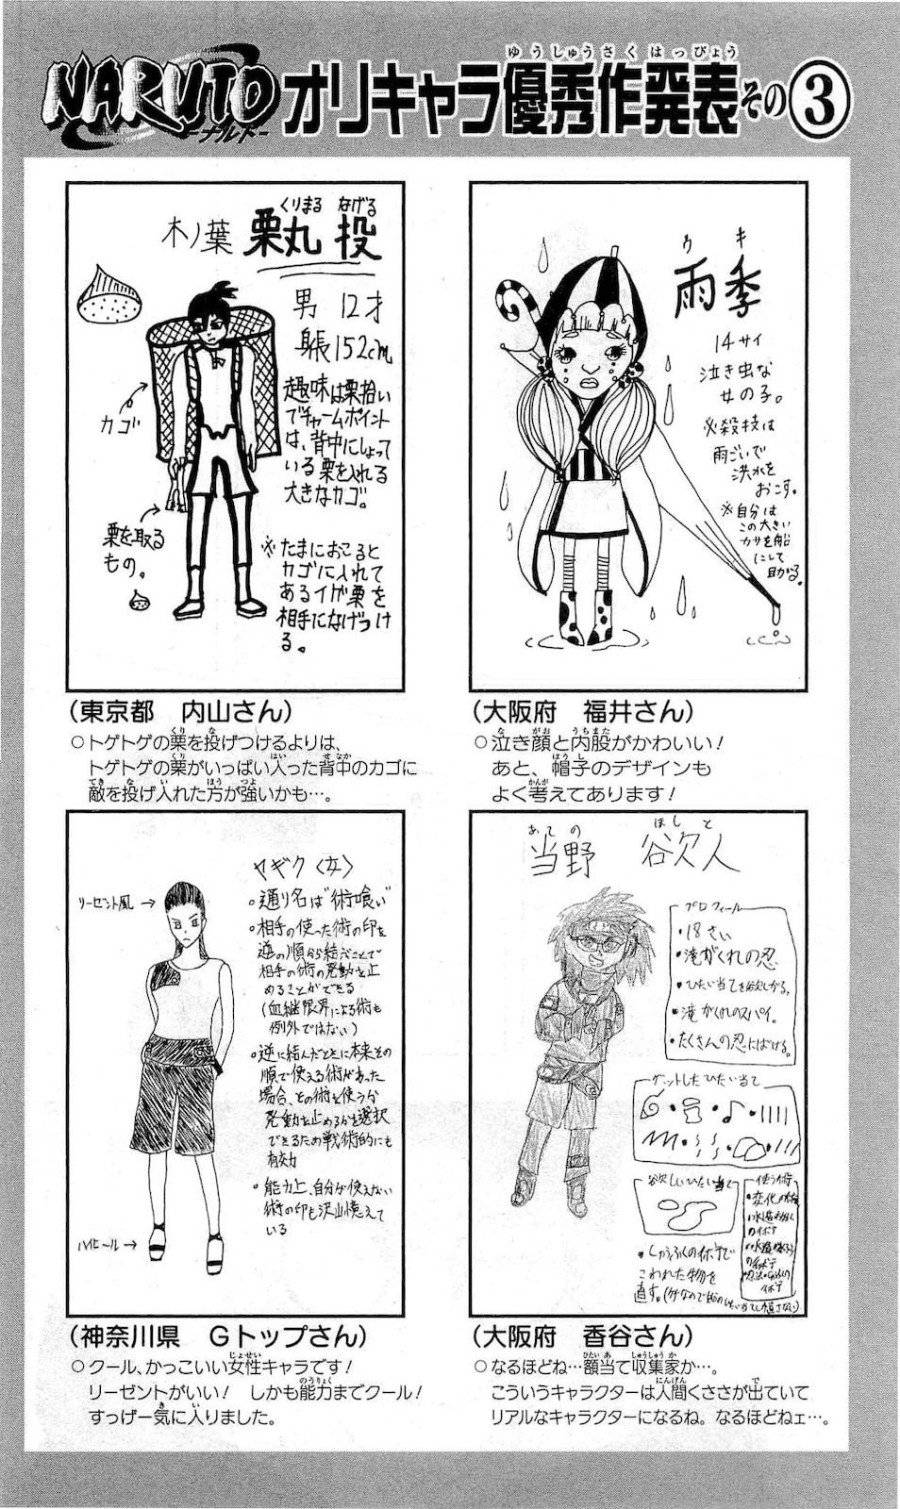 NARUTO
ーナルトー
オリキャラ優秀作発表その③
ゆうしゅうさくはっぴょう
木ノ葉 栗丸 投
くりまる なげる
男 12才
身長152cm
趣味は栗拾い
でチャームポイント
は、背中にしょって
いる栗を入れる
大きなカゴ。
カゴ
栗を取る
もの。
※たまにおこると
カゴに入れて
あるイガ栗を
相手になげつけ
る。
(東京都 内山さん)
○トゲトゲの栗を投げつけるよりは、
トゲトゲの栗がいっぱい入った背中のカゴに
敵を投げ入れた方が強いかも…。
ウキ
雨季
14サイ
泣き虫な
女の子。
必殺技は
雨ごいで
洪水を
おこす。
※自分は
この大きい
カサを船
にして
助かる。
(大阪府 福井さん)
○泣き顔と内股がかわいい!
あと、帽子のデザインも
よく考えてあります!
ヤギク〈女〉
リーゼント風→
ハイヒール→
・通り名は"術喰い"
・相手の使った術の印を
逆の順から結ぶことで
相手の術の発動を止
めることができる
(血継限界による術も
例外ではない)
・逆に結んだときに本来その
順で使える術があった
場合、その術を使うか
発動を止めるかを選択
できるため戦術的にも
有効
・能力上、自分が使えない
術の印も沢山憶えて
いる
(神奈川県 Gトップさん)
○クール、かっこいい女性キャラです!
リーゼントがいい! しかも能力までクール!
すっげー気に入りました。
あての ほしと
当野 欲人
プロフィール
・18さい
・滝がくれの忍
・ひたい当てを欲しがる。
・滝がくれのスパイ。
・たくさんの忍にばける。
ゲットしたひたい当て
欲しいひたい当て
使う術
・変化の術
・しゅうふくの術で
こわれた物を
直す。
(大阪府 香谷さん)
○なるほどね…額当て収集家か…。
こういうキャラクターは人間くささが出ていて
リアルなキャラクターになるね。なるほどねェ…。